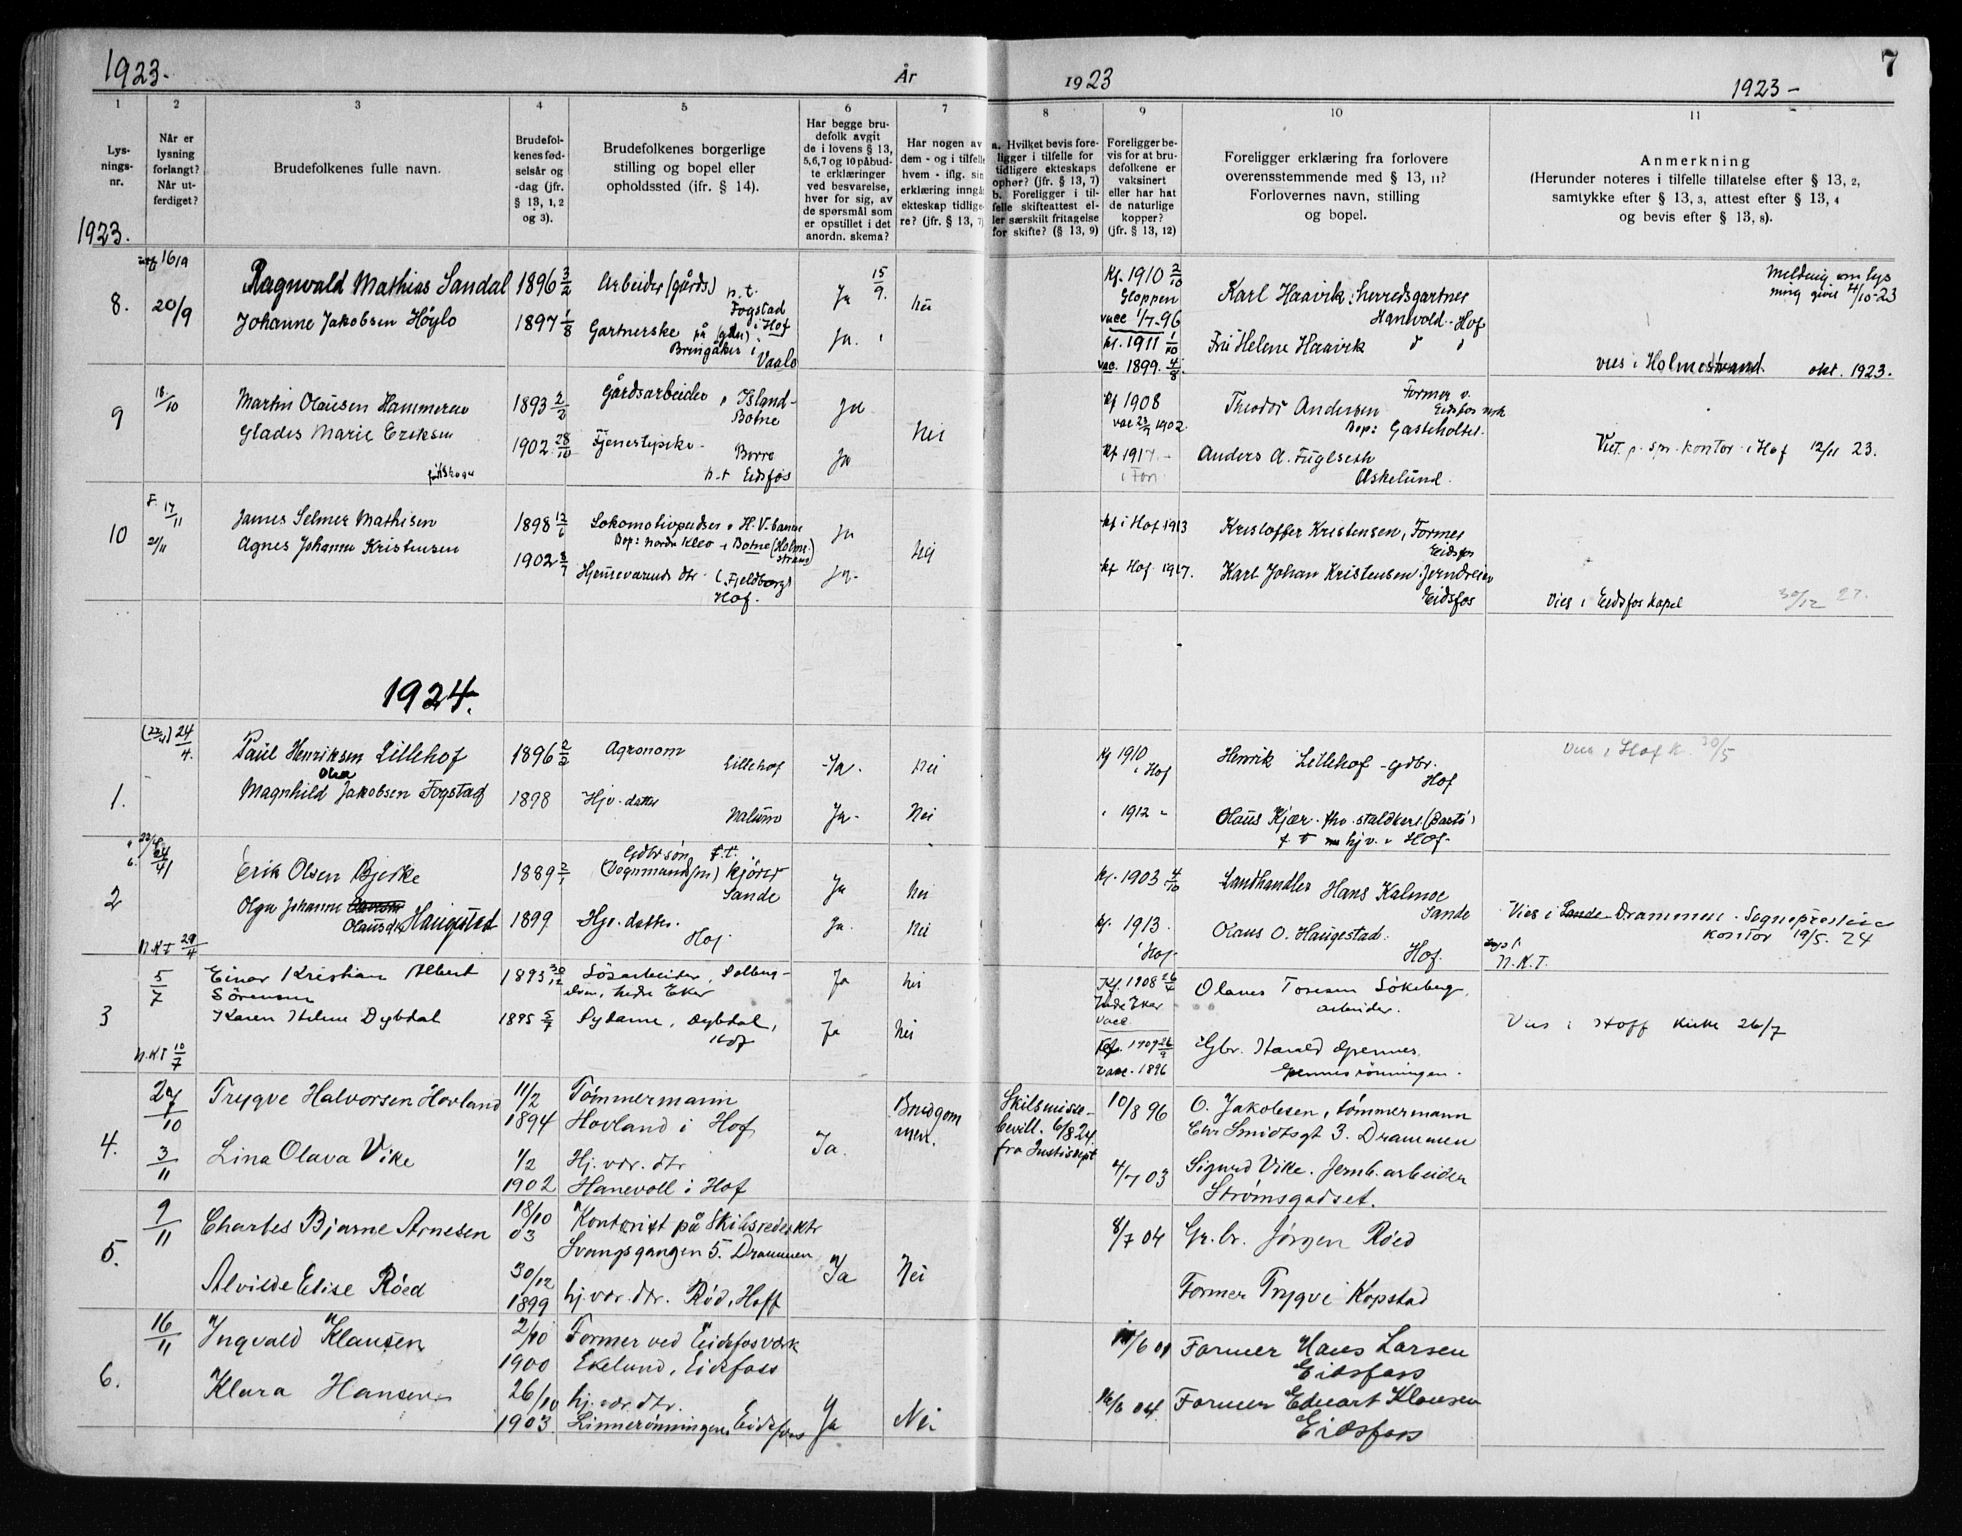 1923.
År
1923
1923 —
7
1
2
3
4
5
6
7
8
9
10
11
Lys-
nings-
nr.
Når er
lysning
forlangt?
Når ut-
ferdiget?
Brudefolkenes fulle navn.
Brudefol-
kenes fød-
selsår og
-dag (jfr.
§ 13, 1, 2
og 3).
Brudefolkenes borgerlige
stilling og bopel eller
opholdssted (jfr. § 14).
Har begge bru-
defolk avgit
de i lovens § 13,
5, 6, 7 og 10 påbud-
te erklæringer
ved besvarelse,
hver for sig, av
de spørsmål som
er opstillet i det
anordn. skema?
Har nogen av
dem - og i tilfelle
hvem - iflg. sin
erklæring inngå
ekteskap tidlige-
re? (jfr. § 13, 7)
a. Hvilket bevis fore-
ligger i tilfelle for
tidligere ekteskaps
ophør? (jfr. § 13, 7)
b. Foreligger i til-
felle skifteattest el-
ler særskilt fritagelse
for skifte? (§ 13, 9)
Foreligger be-
vis for at bru-
defolkene er
vaksinert
eller har hat
de naturlige
kopper?
(jfr. § 13, 12)
Foreligger erklæring fra forlovere
overensstemmende med § 13, 11?
Forlovernes navn, stilling
og bopel.
Anmerkning
(Herunder noteres i tilfelle tillatelse efter § 13, 2,
samtykke efter § 13, 3, attest efter § 13, 4
og bevis efter § 13, 8).
1923.
8.
16/9
20/9
Ragnvald Mathias Sandal
1896 3/2
Arbeider (gårds.) n. t.
Fogstad
i Hof
Ja
15/9.
Nei
Kf. 1910 2/10
Gloppen
vacc 1/7-96
Karl Haavik, herredsgartner
Hanvold - Hof
Meldnig om lys
ning givet 4/10-23
Johanne Jakobsen Høylo
1897 1/8
Gartnerske på
Bringåker i
Vaale
Ja.
kf. 1911 1/10
vac. 1899. 4/8.
Fru Helene Haavik
vies i Holmestrand. okt. 1923.
9
18/10
Martin Olausen Hammeren
1893 2/2
Gårdsarbeider, Island -
Botne
Ja
Nei
kf 1908
vac 1902.
Theodor Andersen Former v.
Eidsfos verk
Bop: Gasteholtet.
Glades Marie Eriksen
1902 28/10
Tjenestepike -
Borre
n. t Eidsfos
Ja
kf 1917 -
Anders A. Fuglseth
Askelund.
Viet p. spr. kontor i Hof 12/11 23.
10
F. 17/11
21/11
James Selmer Mathisen
1898 12/6
Lokomotivpudser v. H. V. banen
Bop: nordre Kleo i Botne (Holme-
strand)
Ja
Nei
kf i Hof 1913
Kristoffer Kristensen, Former
Eidsfos
Agnes Johanne Kristensen
1902
Hjemmeværende dtr. (Fjeldborg)
Hof.
Ja.
kf Hof 1917.
Karl Johan Kristensen, Jerndreier
Eidsfos
Vies i Eidsfos kapel
30/12 27.
1924.
1.
(22/4) 24/4.
Paul Henriksen Lillehof
1896 2/2
Agronom
Lillehof
Ja.
Nei
kf 1910
i Hof
Henrik Lillehof - gdbr.
Hof
Vies i Hof k. 30/5
Olea
Magnhild Jakobsen Fogstad
1898
Hjv. datter
Nalum
Ja-
Nei
" 1912 "
Olaus Kjær
f. t hjv. i Hof.
2
24/4
Erik Olsen Bjerke
1889
Gdbr søn f.t.
(Vognmand) kjører
Sande
Ja
Nei
kf. 1903 4/10
Landhandler Hans Kalmoe
Sande
Olga Johanne
Olausdtr Haugestad
1899
Hjv. datter.
Hof.
Ja.
Nei
kf. 1913.
i Hof.
Olaus O. Haugestad.
Hof.
Vies i Sande Drammen. Sogneprestens
kontor 19/5. 24
N. K. T. 29/4
N. K. T.
3
5/7
Einar Kristian Albert
Sörensen
1893 30/12
Lösarbeider, Solberg-
elven, nedre Eker
Ja
Nei
Kf. 1908 26/4
Nedre Eker
vacc.
Olaves Tosesen Sökeberg,
arbeider.
Karen Helene Dybdal
1895 5/7
Sydame, Dybdal,
Hof
Ja
Nei
Kf. 1909 26/9
vacc. 1896
Gbr. Harald Grennes,
Grennesrönningen.
Vies i Hoff kirke 26/7
N. K. T 10/7
4.
27/10
3/11
Trygve Halvorsen Hovland
11/2
1894
Tømmermann
Hovland i Hof
Ja.
Brudgom
men.
Skilsmisse-
bevill. 6/8 24.
fra Justisdept
10/8 96
O. Jakobsen, tømmermann
Chr Smidtsgt 3. Drammen
Lina Olava Vike
1/2
1902
Hj. vær. dtr
Hanevoll i Hof
4/7 03
Sigurd Vike. Jernb. arbeider
Strømsgodset.
5.
9/11
Charles Bjarne Arnesen
18/10
03
Kontorist på Skibsrederktr
Svangsgangen 5. Drammen
Ja
Nei
8/7 04
Gr. br. Jørgen Røed
Alvilde Elise Røed
30/12
1899
hj. vær. dtr. Rød, Hoff
Former Trygve Kopstad
6.
16/11
Yngvald Klausen
2/10
1900
Former ved Eidsfosværk
Ekelund, Eidsfoss
Former Hans Larsen
Eidsfoss
Klara Hansen
26/10
1903
hj. vær. dtr.
Linnerønningen, Eidsfoss
Ja
Nei
16/6 04.
Former Edvart Klausen
Eidsfoss